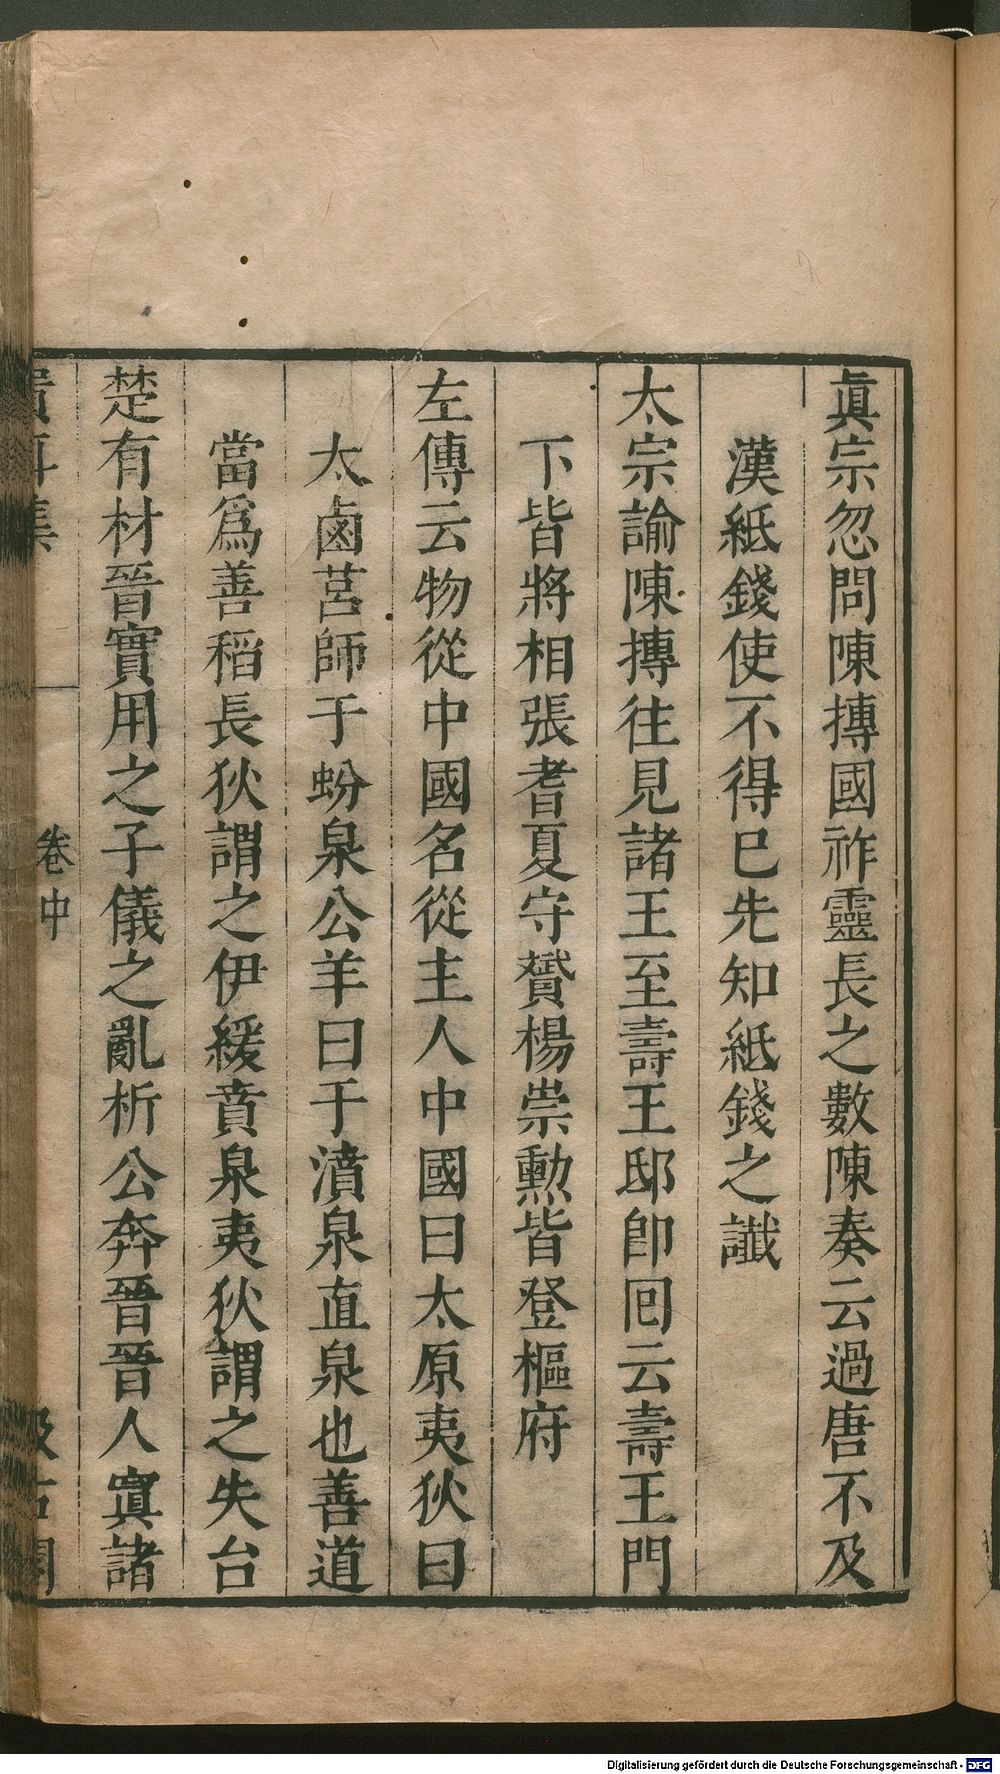 眞宗忽問陳摶國祚靈長之數陳奏云過唐不及
漢紙錢使不得巳先知紙錢之讖
太宗諭陳摶往見諸王至壽王邸卽囘云壽王門
下皆將相張耆夏守贇楊崇勲皆登樞府
左傳云物從中國名從主人中國曰太原夷狄曰
太鹵莒師于蚡泉公羊曰于濆泉直泉也善道
當爲善稻長狄謂之伊緩賁泉夷狄謂之失台
楚有材晉實用之子儀之亂析公奔晉晉人寘諸
貴耳集
卷中
汲古閣
Digitalisierung gefördert durch die Deutsche Forschungsgemeinschaft - DFG